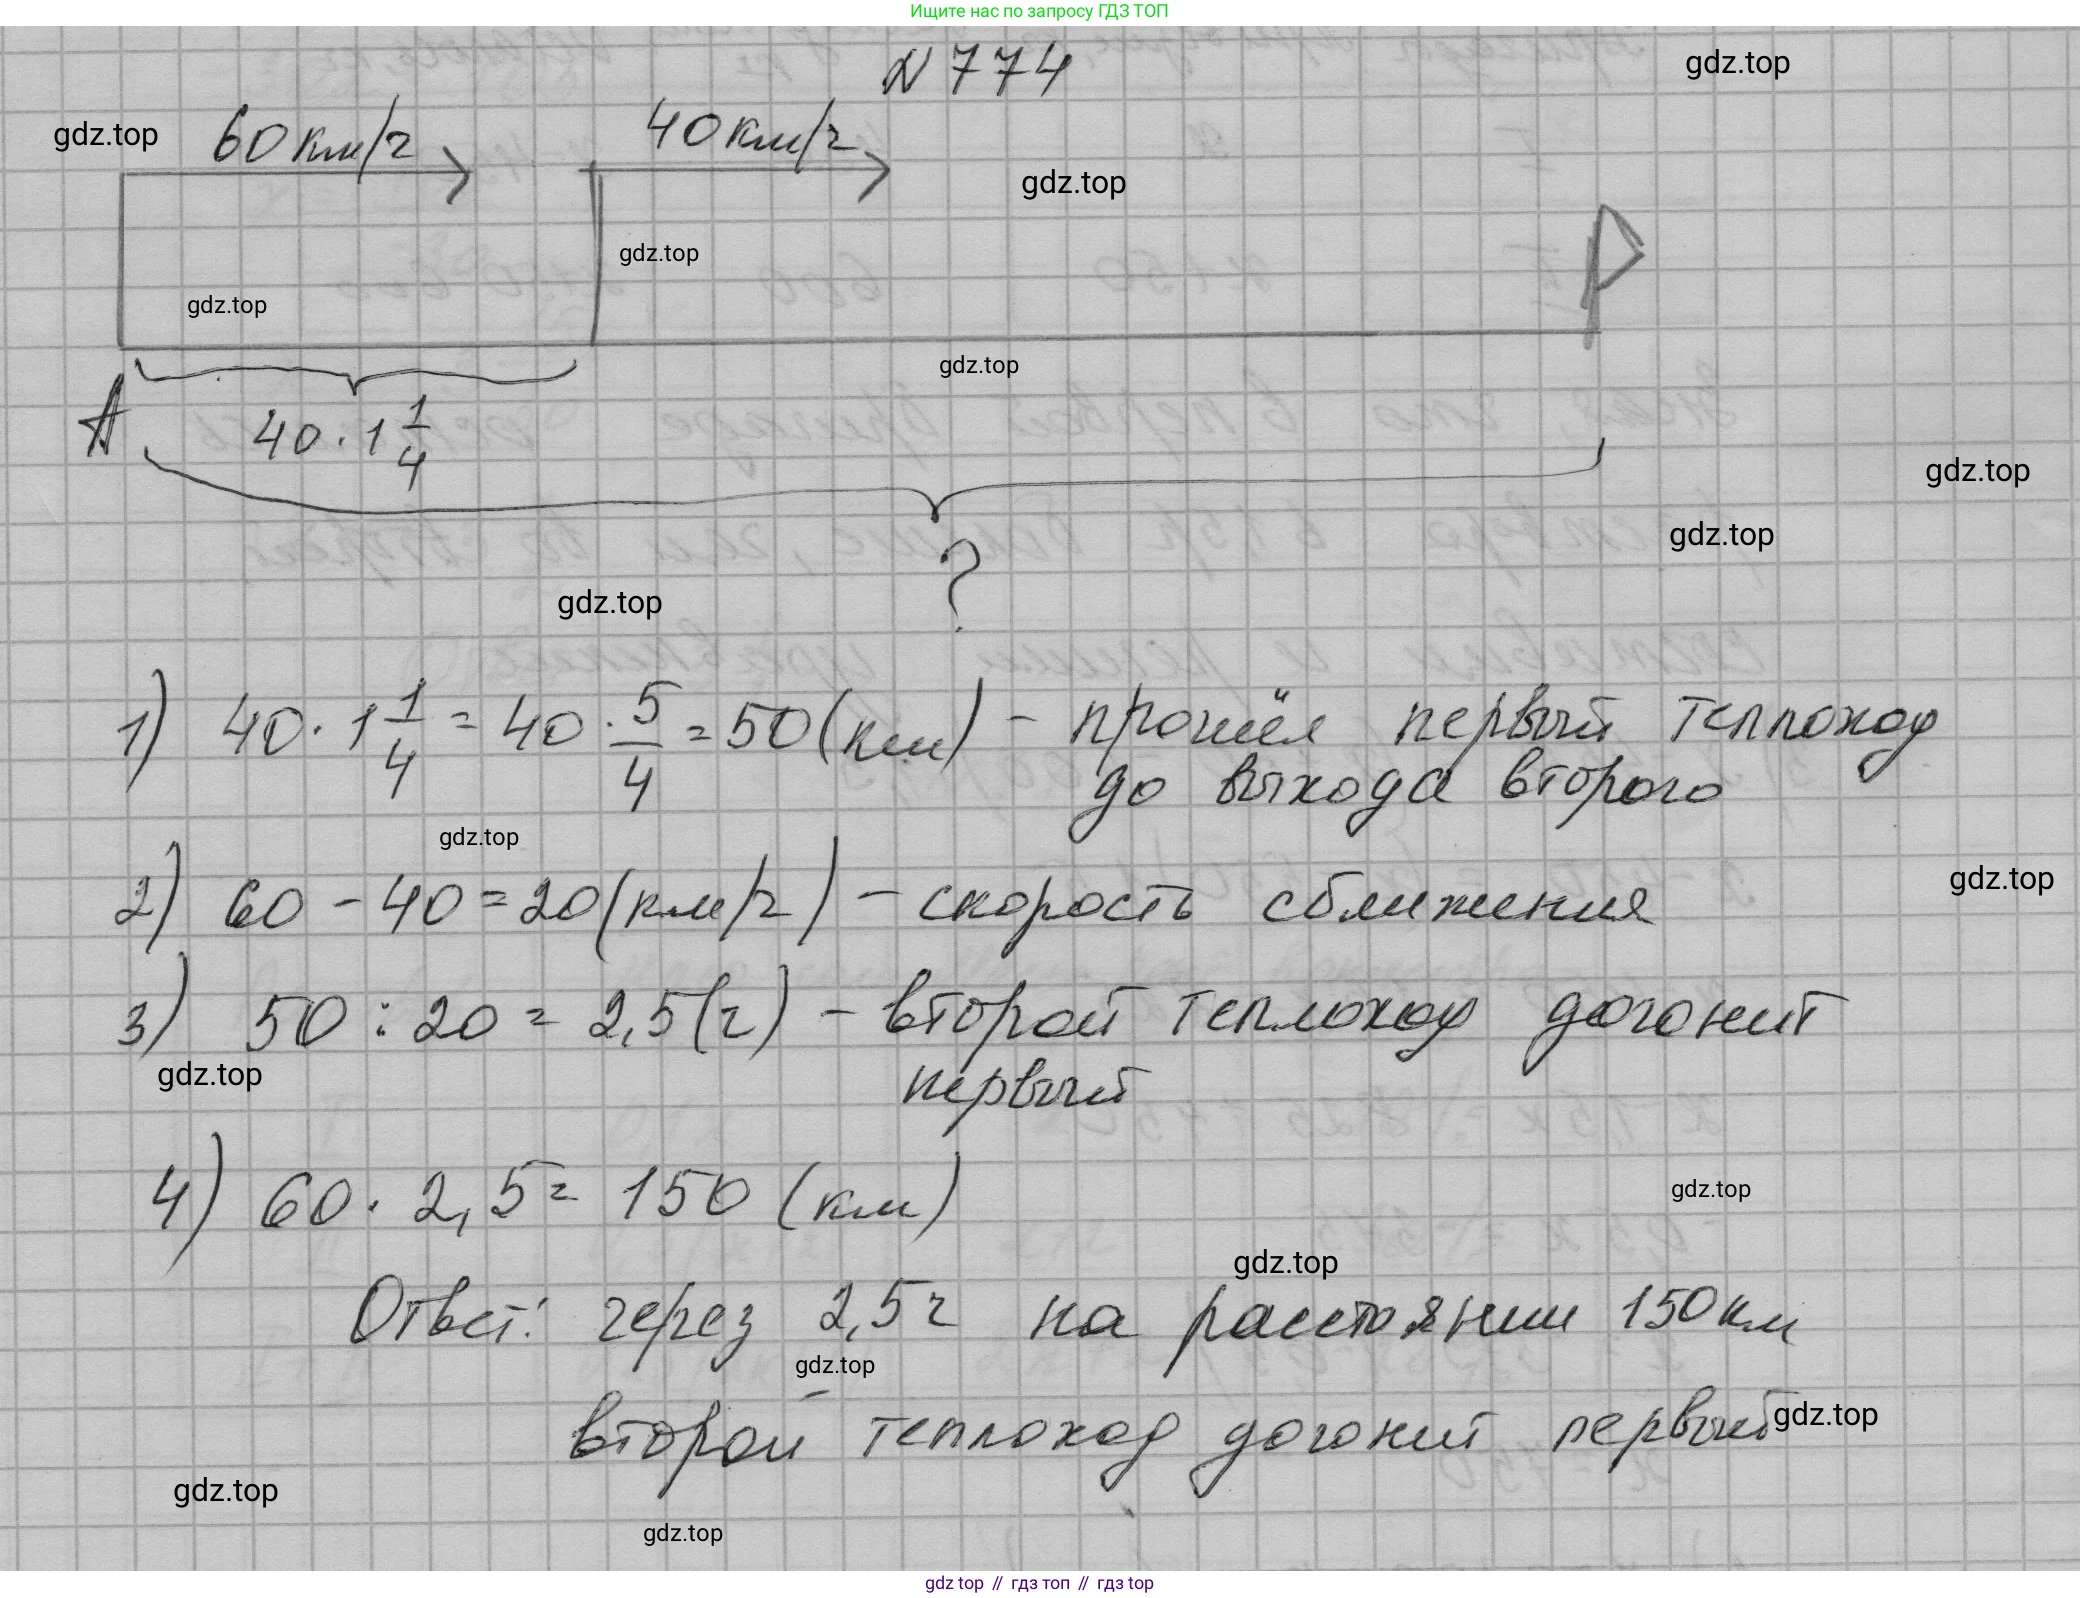 Ищите нас по запросу ГДЗ ТОП
N 774
gdz.top
gdz.top
60 км/ч
40 км/ч
gdz.top
gdz.top
gdz.top
gdz.top
A
40 · 1 1/4
gdz.top
gdz.top
?
gdz.top
1) 40 · 1 1/4 = 40 · 5/4 = 50 (км) - прошёл первый теплоход
до выхода второго
gdz.top
2) 60 - 40 = 20 (км/ч) - скорость сближения
gdz.top
3) 50 : 20 = 2,5 (ч) - второй теплоход догонит
первый
gdz.top
4) 60 · 2,5 = 150 (км)
gdz.top
gdz.top
Ответ: через 2,5 ч на расстоянии 150 км
gdz.top
второй теплоход догонит первый
gdz.top
gdz.top
gdz.top
gdz top // гдз топ // гдз top